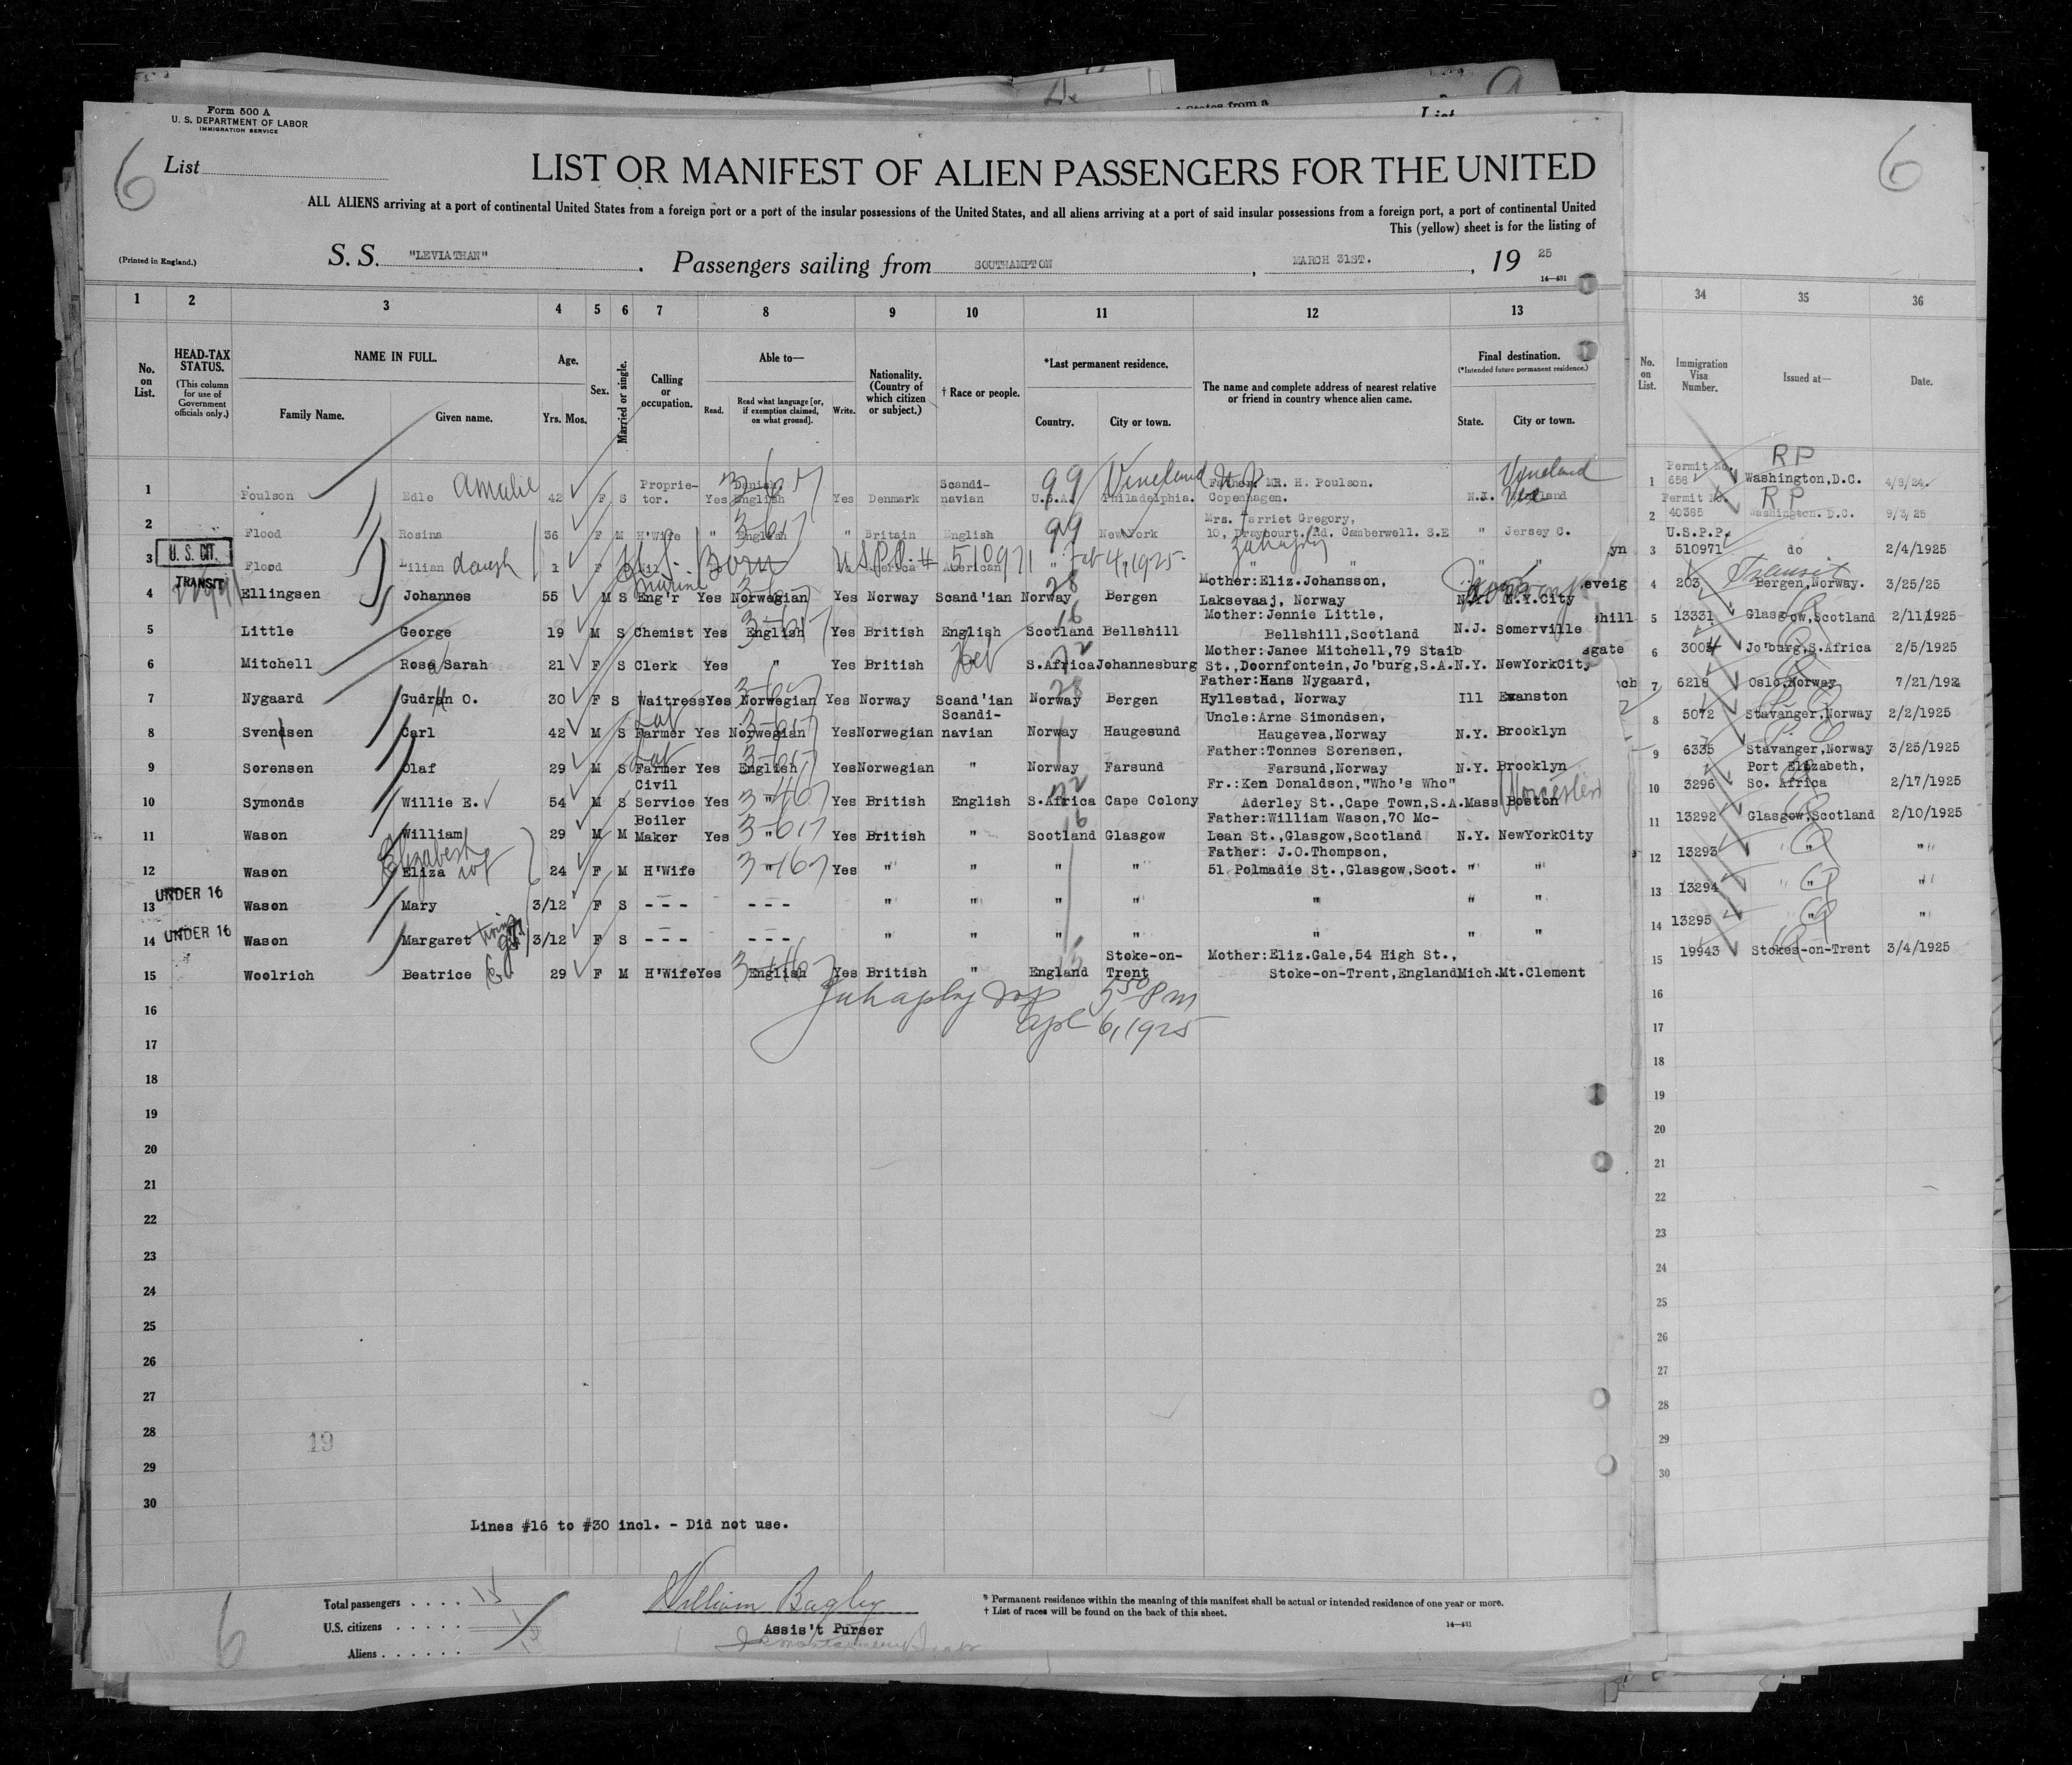 Form 500 A
U. S. DEPARTMENT OF LABOR
IMMIGRATION SERVICE
6
List
LIST OR MANIFEST OF ALIEN PASSENGERS FOR THE UNITED
ALL ALIENS arriving at a port of continental United States from a foreign port or a port of the insular possessions of the United States, and all aliens arriving at a port of said insular possessions from a foreign port, a port of continental United
This (yellow) sheet is for the listing of
(Printed in England.)
S. S. "LEVIATHAN" Passengers sailing from SOUTHAMPTON, MARCH 31ST., 1925
14—431
1 2 3 4 5 6 7 8 9 10 11 12 13
No. on List.
HEAD-TAX STATUS.
(This column for use of Government officials only.)
NAME IN FULL.
Family Name. Given name.
Age.
Yrs. Mos.
Sex.
Married or single.
Calling or occupation.
Able to—
Read. Read what language [or, if exemption claimed, on what ground]. Write.
Nationality. (Country of which citizen or subject.)
† Race or people.
*Last permanent residence.
Country. City or town.
The name and complete address of nearest relative or friend in country whence alien came.
Final destination.
(*Intended future permanent residence.)
State. City or town.
1 Poulson Edle Amalie 42 F S Proprie-tor. Yes Danish English Yes Denmark Scandi-navian 99 U.S.A. Vineland Philadelphia. Father: MR. H. Poulson. Copenhagen. N.J. Vineland
2 Flood Rosina 36 F M H'Wife " English " Britain English 99 NewYork Mrs. Harriet Gregory, 10, Draycourt Rd. Camberwell. S.E " Jersey C.
U. S. CIT.
3 Flood Lilian daugh 1 F Born USPP# 510971 Feb 4, 1925 American " " "
TRANSIT
4 Ellingsen Johannes 55 M S Marine Eng'r Yes Norwegian Yes Norway Scand'ian 28 Norway Bergen Mother:Eliz.Johansson, Laksevaaj, Norway N.Y. N.Y.City
5 Little George 19 M S Chemist Yes English Yes British English 16 Scotland Bellshill Mother:Jennie Little, Bellshill,Scotland N.J. Somerville
6 Mitchell Rose Sarah 21 F S Clerk Yes " Yes British Heb S.Africa Johannesburg Mother:Janee Mitchell,79 Staib St.,Doornfontein,Jo'burg,S.A. N.Y. NewYorkCity
7 Nygaard Gudrun O. 30 F S Waitress Yes Norwegian Yes Norway Scand'ian 28 Norway Bergen Father:Hans Nygaard, Hyllestad, Norway Ill Evanston
8 Svendsen Carl 42 M S Lab Farmer Yes Norwegian Yes Norwegian Scandi-navian Norway Haugesund Uncle:Arne Simondsen, Haugevea,Norway N.Y. Brooklyn
9 Sorensen Olaf 29 M S Lab Farmer Yes English Yes Norwegian " Norway Farsund Father:Tonnes Sorensen, Farsund,Norway N.Y. Brooklyn
10 Symonds Willie E. 54 M S Civil Service Yes " Yes British English S.Africa Cape Colony Fr.:Ken Donaldson,"Who's Who" Aderley St.,Cape Town,S.A. Mass Boston Worcester
11 Wason William 29 M M Boiler Maker Yes " Yes British " 16 Scotland Glasgow Father:William Wason,70 Mc-Lean St.,Glasgow,Scotland N.Y. NewYorkCity
12 Wason Elizabeth Eliza wf 24 F M H'Wife " Yes " " " " Father: J.O.Thompson, 51 Polmadie St.,Glasgow,Scot. " "
UNDER 16
13 Wason Mary 3/12 F S --- --- " " " " " " "
UNDER 16
14 Wason Margaret twins 3/12 F S --- --- " " " " " " "
15 Woolrich Beatrice 29 F M H'Wife Yes English Yes British " England Stoke-on-Trent Mother:Eliz.Gale,54 High St., Stoke-on-Trent,England Mich. Mt.Clement
16
5 30 Pm
Apl 6, 1925
17
18
19
20
21
22
23
24
25
26
27
28
19
29
30
Lines #16 to #30 incl. - Did not use.
6
Total passengers . . . . 15
U.S. citizens . . . . . 1
Aliens . . . . . .
William Bagley
Assis't Purser
* Permanent residence within the meaning of this manifest shall be actual or intended residence of one year or more.
† List of races will be found on the back of this sheet.
14—431
6
34 35 36
No. on List. Immigration Visa Number. Issued at— Date.
1 Permit No. 658 RP Washington,D.C. 4/8/24.
2 Permit No. 40385 RP Washington. D.C. 9/3/25
3 U.S.P.P. 510971 do 2/4/1925
4 203 Transit Bergen,Norway. 3/25/25
5 13331 Glasgow,Scotland 2/11/1925
6 3004 Jo'burg,S.Africa 2/5/1925
7 6218 Oslo,Norway 7/21/1924
8 5072 Stavanger,Norway 2/2/1925
9 6335 Stavanger,Norway 3/25/1925
10 3296 Port Elizabeth, So. Africa 2/17/1925
11 13292 Glasgow,Scotland 2/10/1925
12 13293 " "
13 13294 " "
14 13295 " "
15 19943 Stokes-on-Trent 3/4/1925
16
17
18
19
20
21
22
23
24
25
26
27
28
29
30